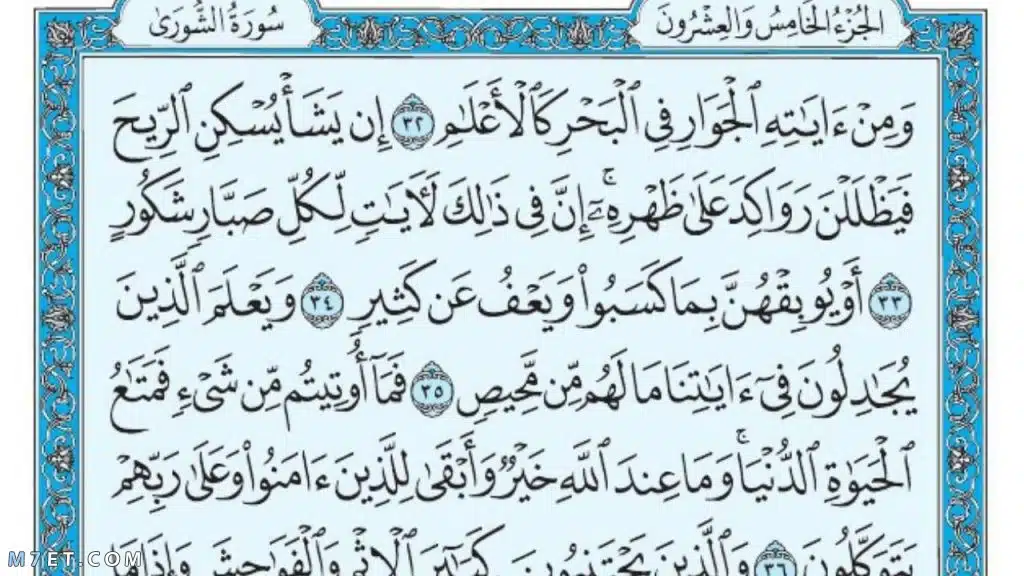 الجُزْءُ الخَامِسُ وَالعِشْرُونَ
سُورَةُ الشُّورَىٰ
وَمِنْ ءَايَٰتِهِ ٱلْجَوَارِ فِى ٱلْبَحْرِ كَٱلْأَعْلَٰمِ ٣٢ إِن يَشَأْ يُسْكِنِ ٱلرِّيحَ
فَيَظْلَلْنَ رَوَاكِدَ عَلَىٰ ظَهْرِهِۦٓ ۚ إِنَّ فِى ذَٰلِكَ لَءَايَٰتٍ لِّكُلِّ صَبَّارٍ شَكُورٍ
٣٣ أَوْ يُوبِقْهُنَّ بِمَا كَسَبُوا۟ وَيَعْفُ عَن كَثِيرٍ ٣٤ وَيَعْلَمَ ٱلَّذِينَ
يُجَٰدِلُونَ فِىٓ ءَايَٰتِنَا مَا لَهُم مِّن مَّحِيصٍ ٣٥ فَمَآ أُوتِيتُم مِّن شَىْءٍ فَمَتَٰعُ
ٱلْحَيَوٰةِ ٱلدُّنْيَا ۚ وَمَا عِندَ ٱللَّهِ خَيْرٌ وَأَبْقَىٰ لِلَّذِينَ ءَامَنُوا۟ وَعَلَىٰ رَبِّهِمْ
يَتَوَكَّلُونَ ٣٦ وَٱلَّذِينَ يَجْتَنِبُونَ كَبَٰٓئِرَ ٱلْإِثْمِ وَٱلْفَوَٰحِشَ وَإِذَا مَا
M7ET.COM